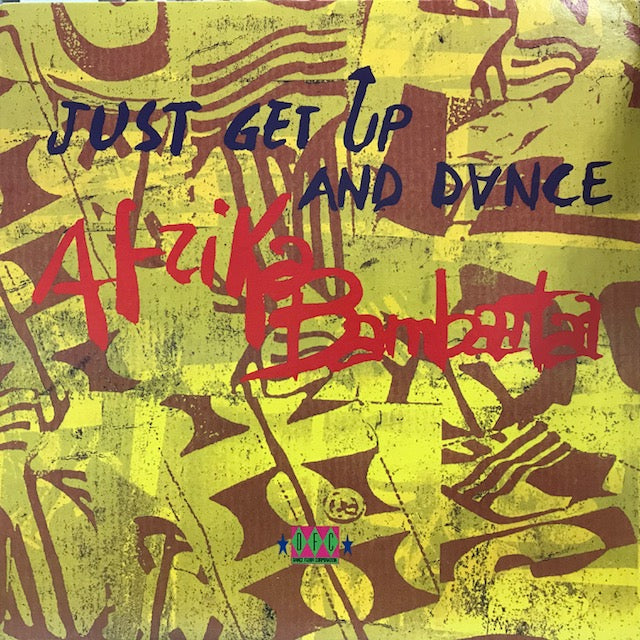 JUST GET UP
AND DANCE
Afrika
Bambaataa
DFC
DANCE FLOOR CORPORATION